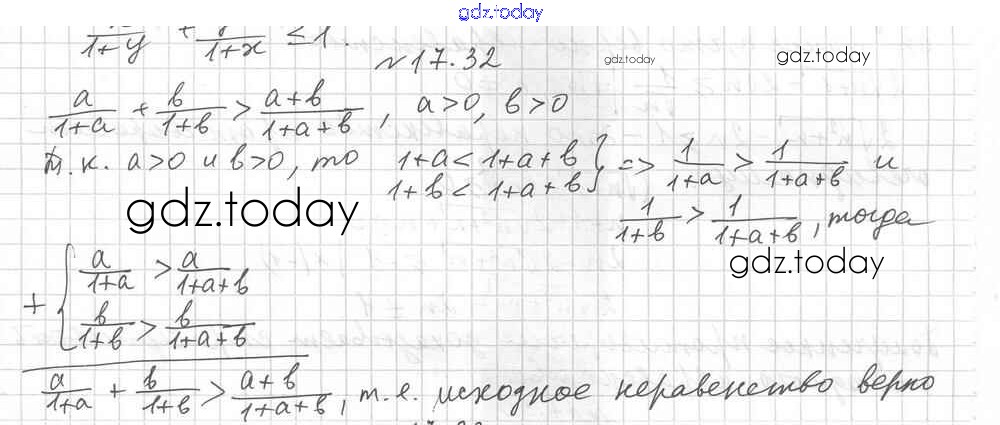 gdz.today
/(1+y) + /(1+x) ≤ 1.
№17.32
gdz.today
gdz.today
a/(1+a) + b/(1+b) > (a+b)/(1+a+b), a>0, b>0
т.к. a>0 и b>0, то 1+a < 1+a+b } => 1/(1+a) > 1/(1+a+b) и
1+b < 1+a+b
gdz.today
1/(1+b) > 1/(1+a+b), тогда
gdz.today
+ { a/(1+a) > a/(1+a+b)
b/(1+b) > b/(1+a+b)
a/(1+a) + b/(1+b) > (a+b)/(1+a+b), т.е. исходное неравенство верно